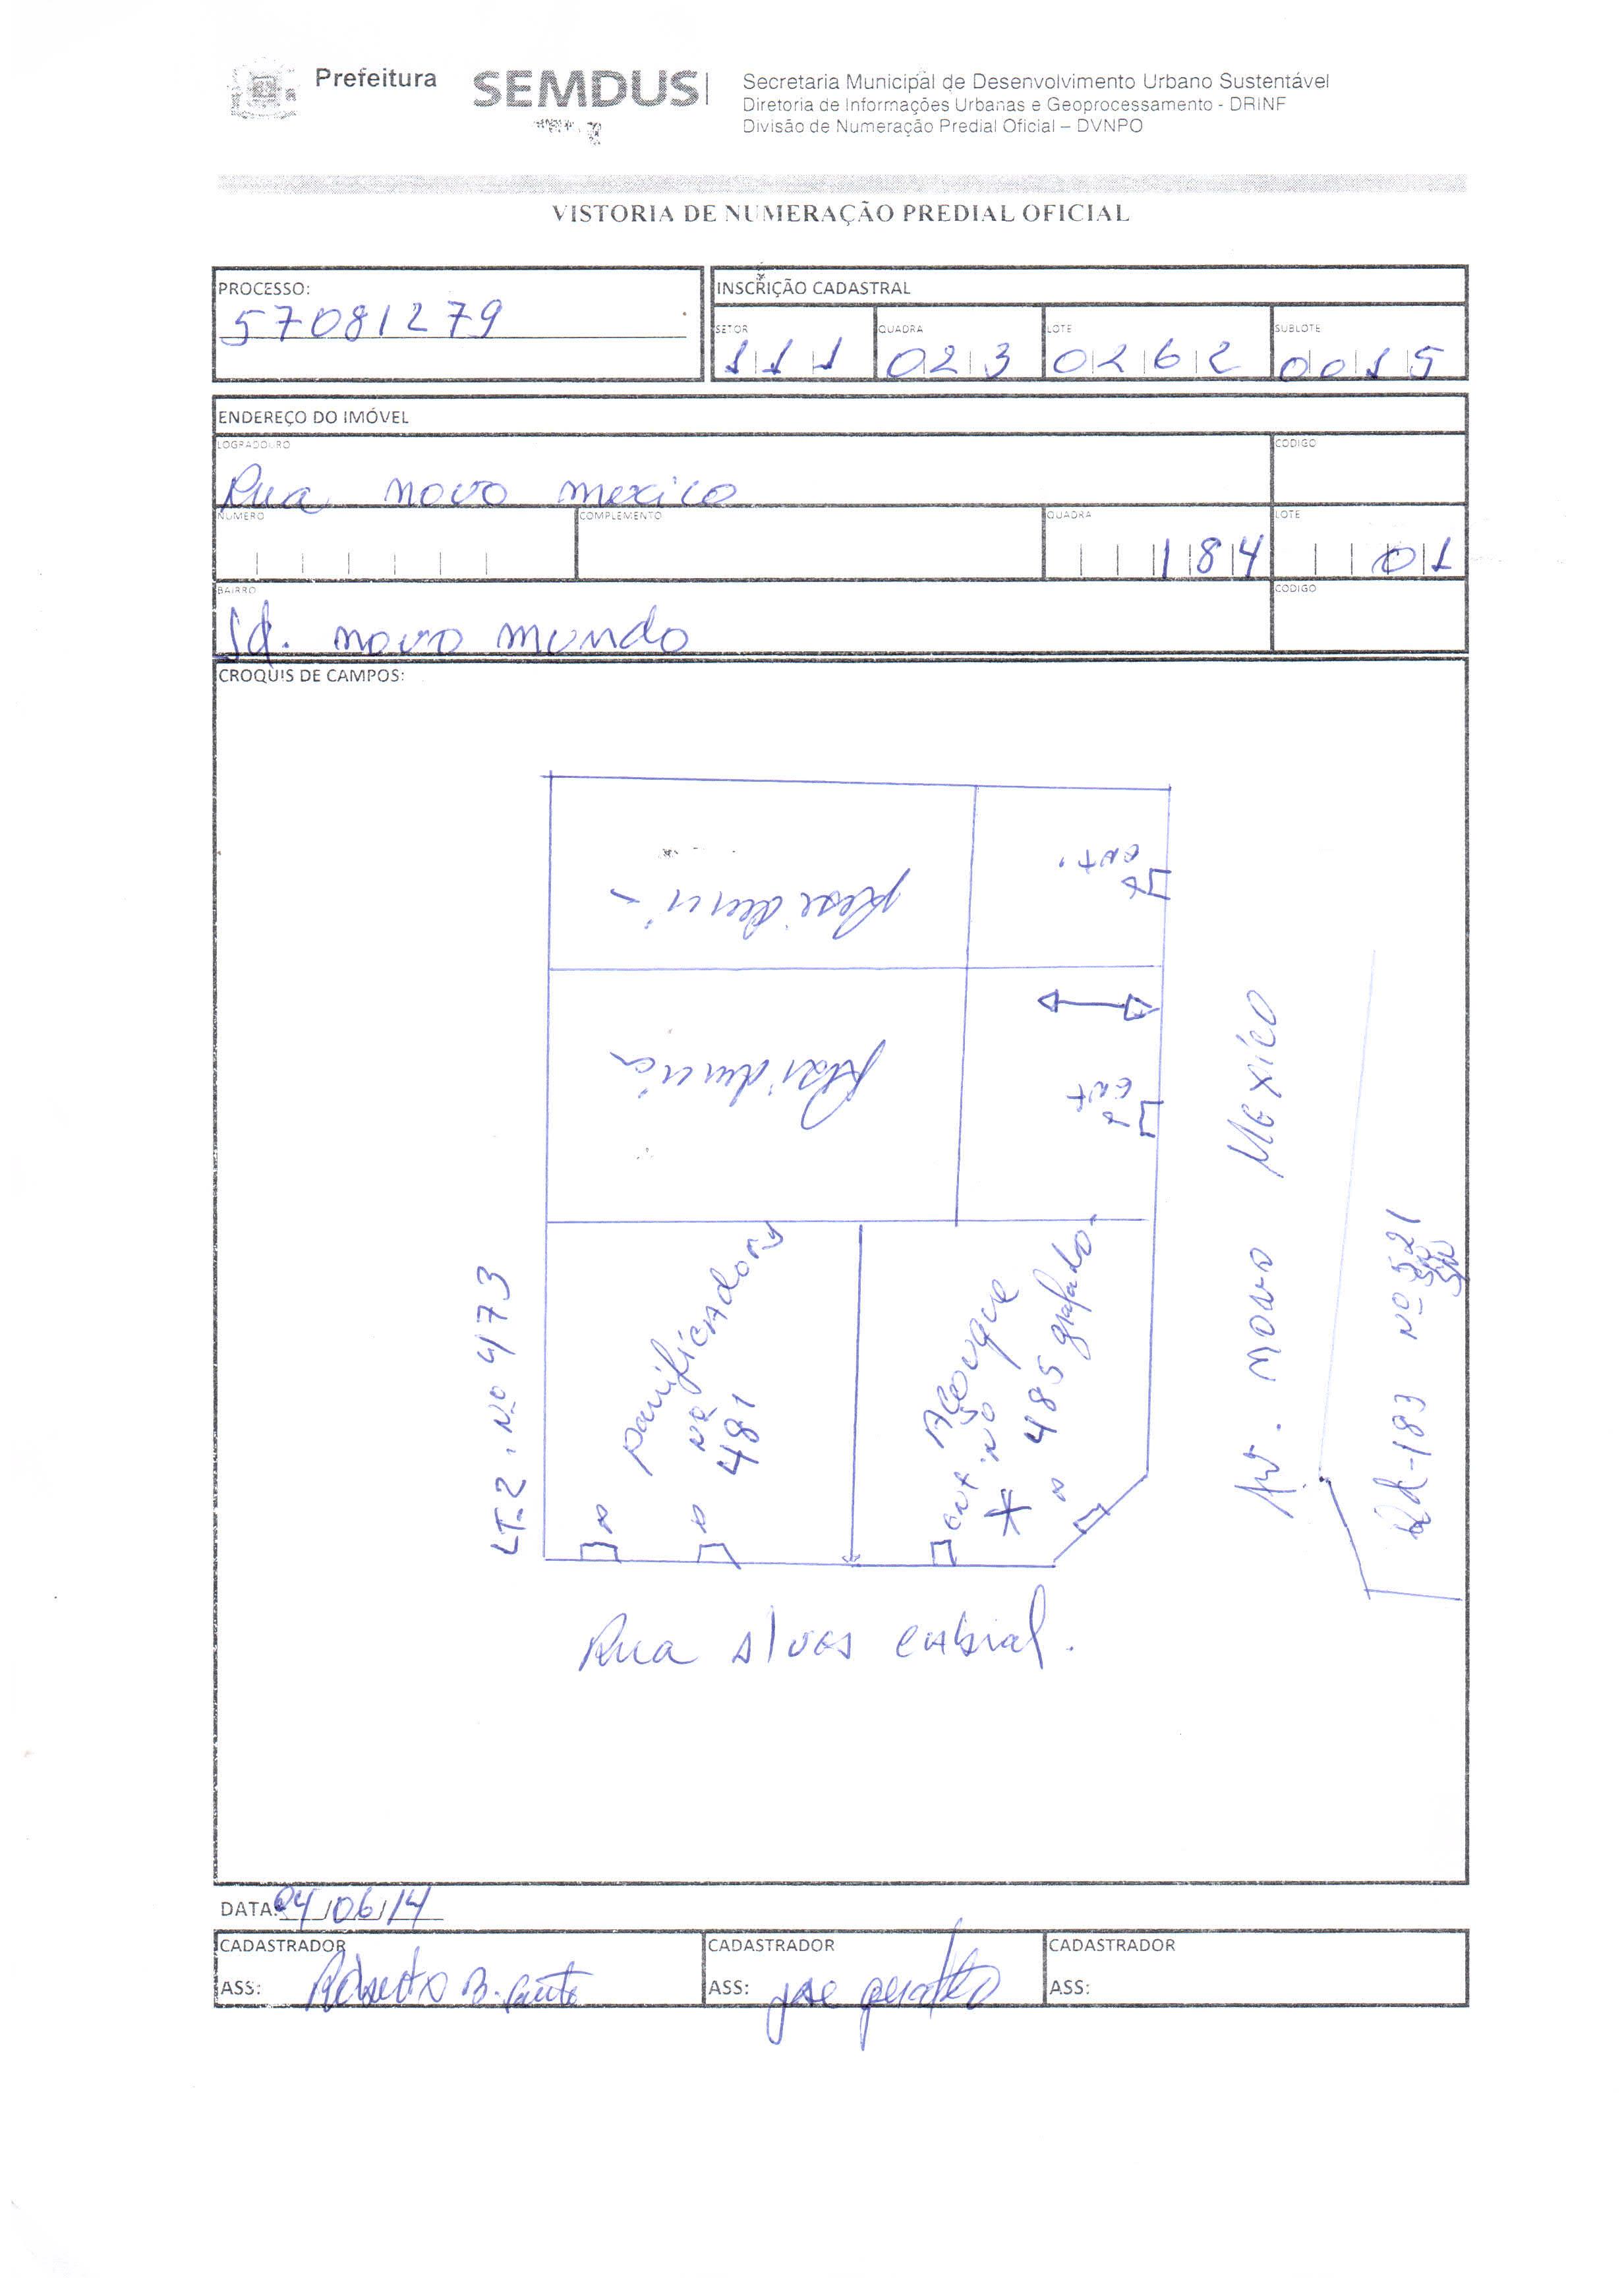 Prefeitura
SEMDUS
Secretaria Municipal de Desenvolvimento Urbano Sustentável
Diretoria de Informações Urbanas e Geoprocessamento - DRINF
Divisão de Numeração Predial Oficial – DVNPO
VISTORIA DE NUMERAÇÃO PREDIAL OFICIAL
PROCESSO:
57081279
INSCRIÇÃO CADASTRAL
SETOR
111
QUADRA
023
LOTE
0262
SUBLOTE
0015
ENDEREÇO DO IMÓVEL
LOGRADOURO
Rua novo mexico
CODIGO
NUMERO
COMPLEMENTO
QUADRA
184
LOTE
01
BAIRRO
Jd. novo mundo
CODIGO
CROQUIS DE CAMPOS:
ent.
Residenci
Residencia
ent
Av. novo México
LT-2. Nº 473
panificadora
Nº
481
Açougue
ent. Nº
485 grafado
Qd-183 Nº 521
Rua Alves cabral.
DATA: 04/06/14
CADASTRADOR
ASS: Roberto B.
CADASTRADOR
ASS: jose geraldo
CADASTRADOR
ASS: